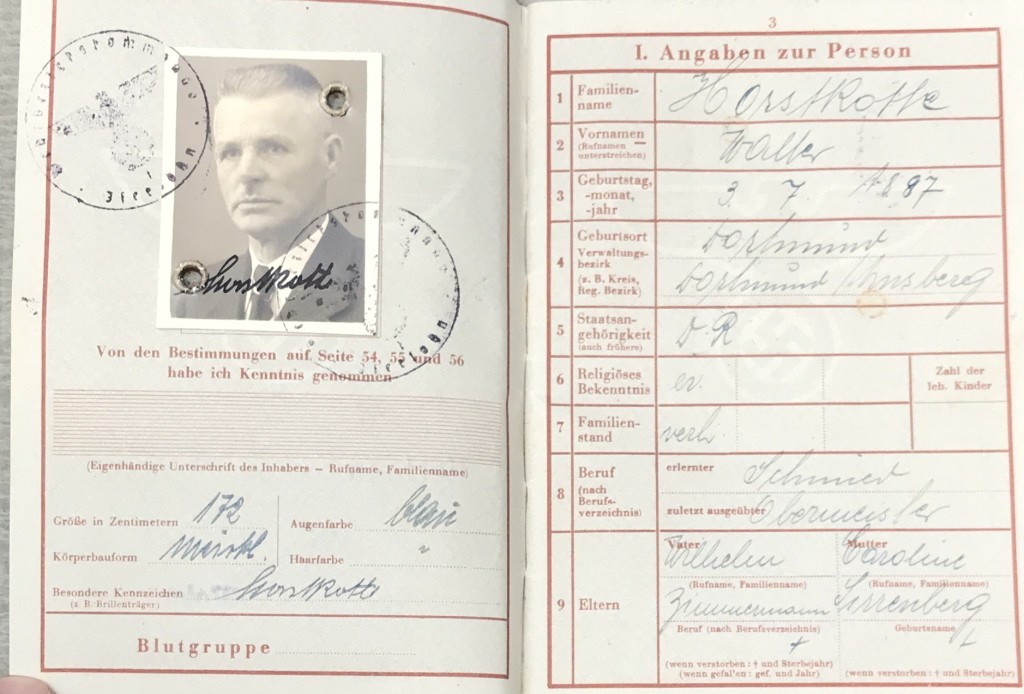 Horstkotte
Von den Bestimmungen auf Seite 54, 55 und 56
habe ich Kenntnis genommen
(Eigenhändige Unterschrift des Inhabers – Rufname, Familienname)
Größe in Zentimetern 172
Augenfarbe blau
Körperbauform
Haarfarbe "
Besondere Kennzeichen Horstkotte
(z. B. Brillenträger)
Blutgruppe
3
I. Angaben zur Person
1 Familien-
name
Horstkotte
2 Vornamen
(Rufnamen
unterstreichen)
Walter
3 Geburtstag,
-monat,
-jahr
3 7 1887
4 Geburtsort
Verwaltungs-
bezirk
(z. B. Kreis,
Reg. Bezirk)
Dortmund
Dortmund Arnsberg
5 Staatsan-
gehörigkeit
(auch frühere)
D R
6 Religiöses
Bekenntnis
ev.
Zahl der
leb. Kinder
7 Familien-
stand
verh.
8 Beruf
(nach
Berufs-
verzeichnis)
erlernter Schmied
zuletzt ausgeübter Obermeister
9 Eltern
Vater
Wilhelm
(Rufname, Familienname)
Zimmermann
Beruf (nach Berufsverzeichnis)
+
(wenn verstorben: † und Sterbejahr)
(wenn gefallen: gef. und Jahr)
Mutter
Caroline
(Rufname, Familienname)
Geburtsname
+
(wenn verstorben: † und Sterbejahr)